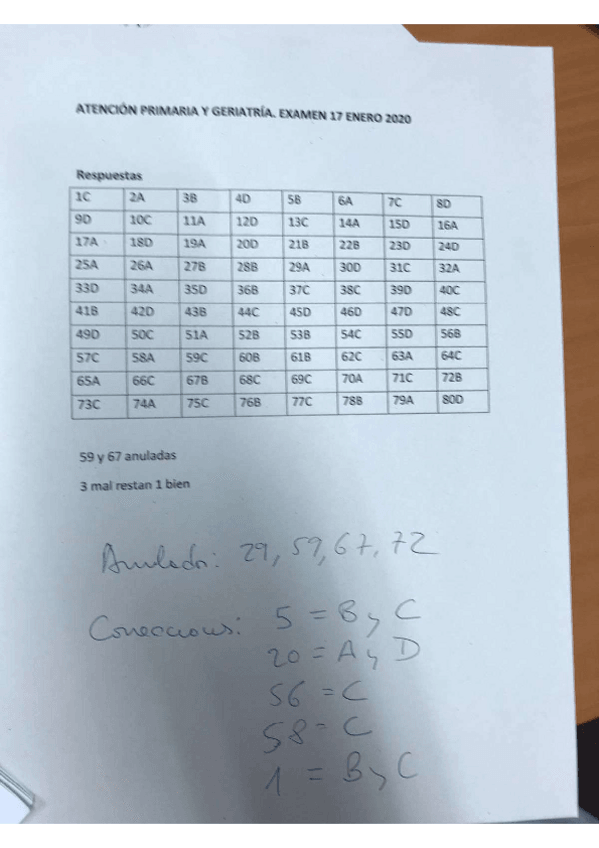 ATENCIÓN PRIMARIA Y GERIATRÍA. EXAMEN 17 ENERO 2020
Respuestas
1C 2A 3B 4D 5B 6A 7C 8D
9D 10C 11A 12D 13C 14A 15D 16A
17A 18D 19A 20D 21B 22B 23D 24D
25A 26A 27B 28B 29A 30D 31C 32A
33D 34A 35D 36B 37C 38C 39D 40C
41B 42D 43B 44C 45D 46D 47D 48C
49D 50C 51A 52B 53B 54C 55D 56B
57C 58A 59C 60B 61B 62C 63A 64C
65A 66C 67B 68C 69C 70A 71C 72B
73C 74A 75C 76B 77C 78B 79A 80D
59 y 67 anuladas
3 mal restan 1 bien
Anuladas: 29, 59, 67, 72
Correcciones: 5 = B y C
20 = A y D
56 = C
58 = C
1 = B y C